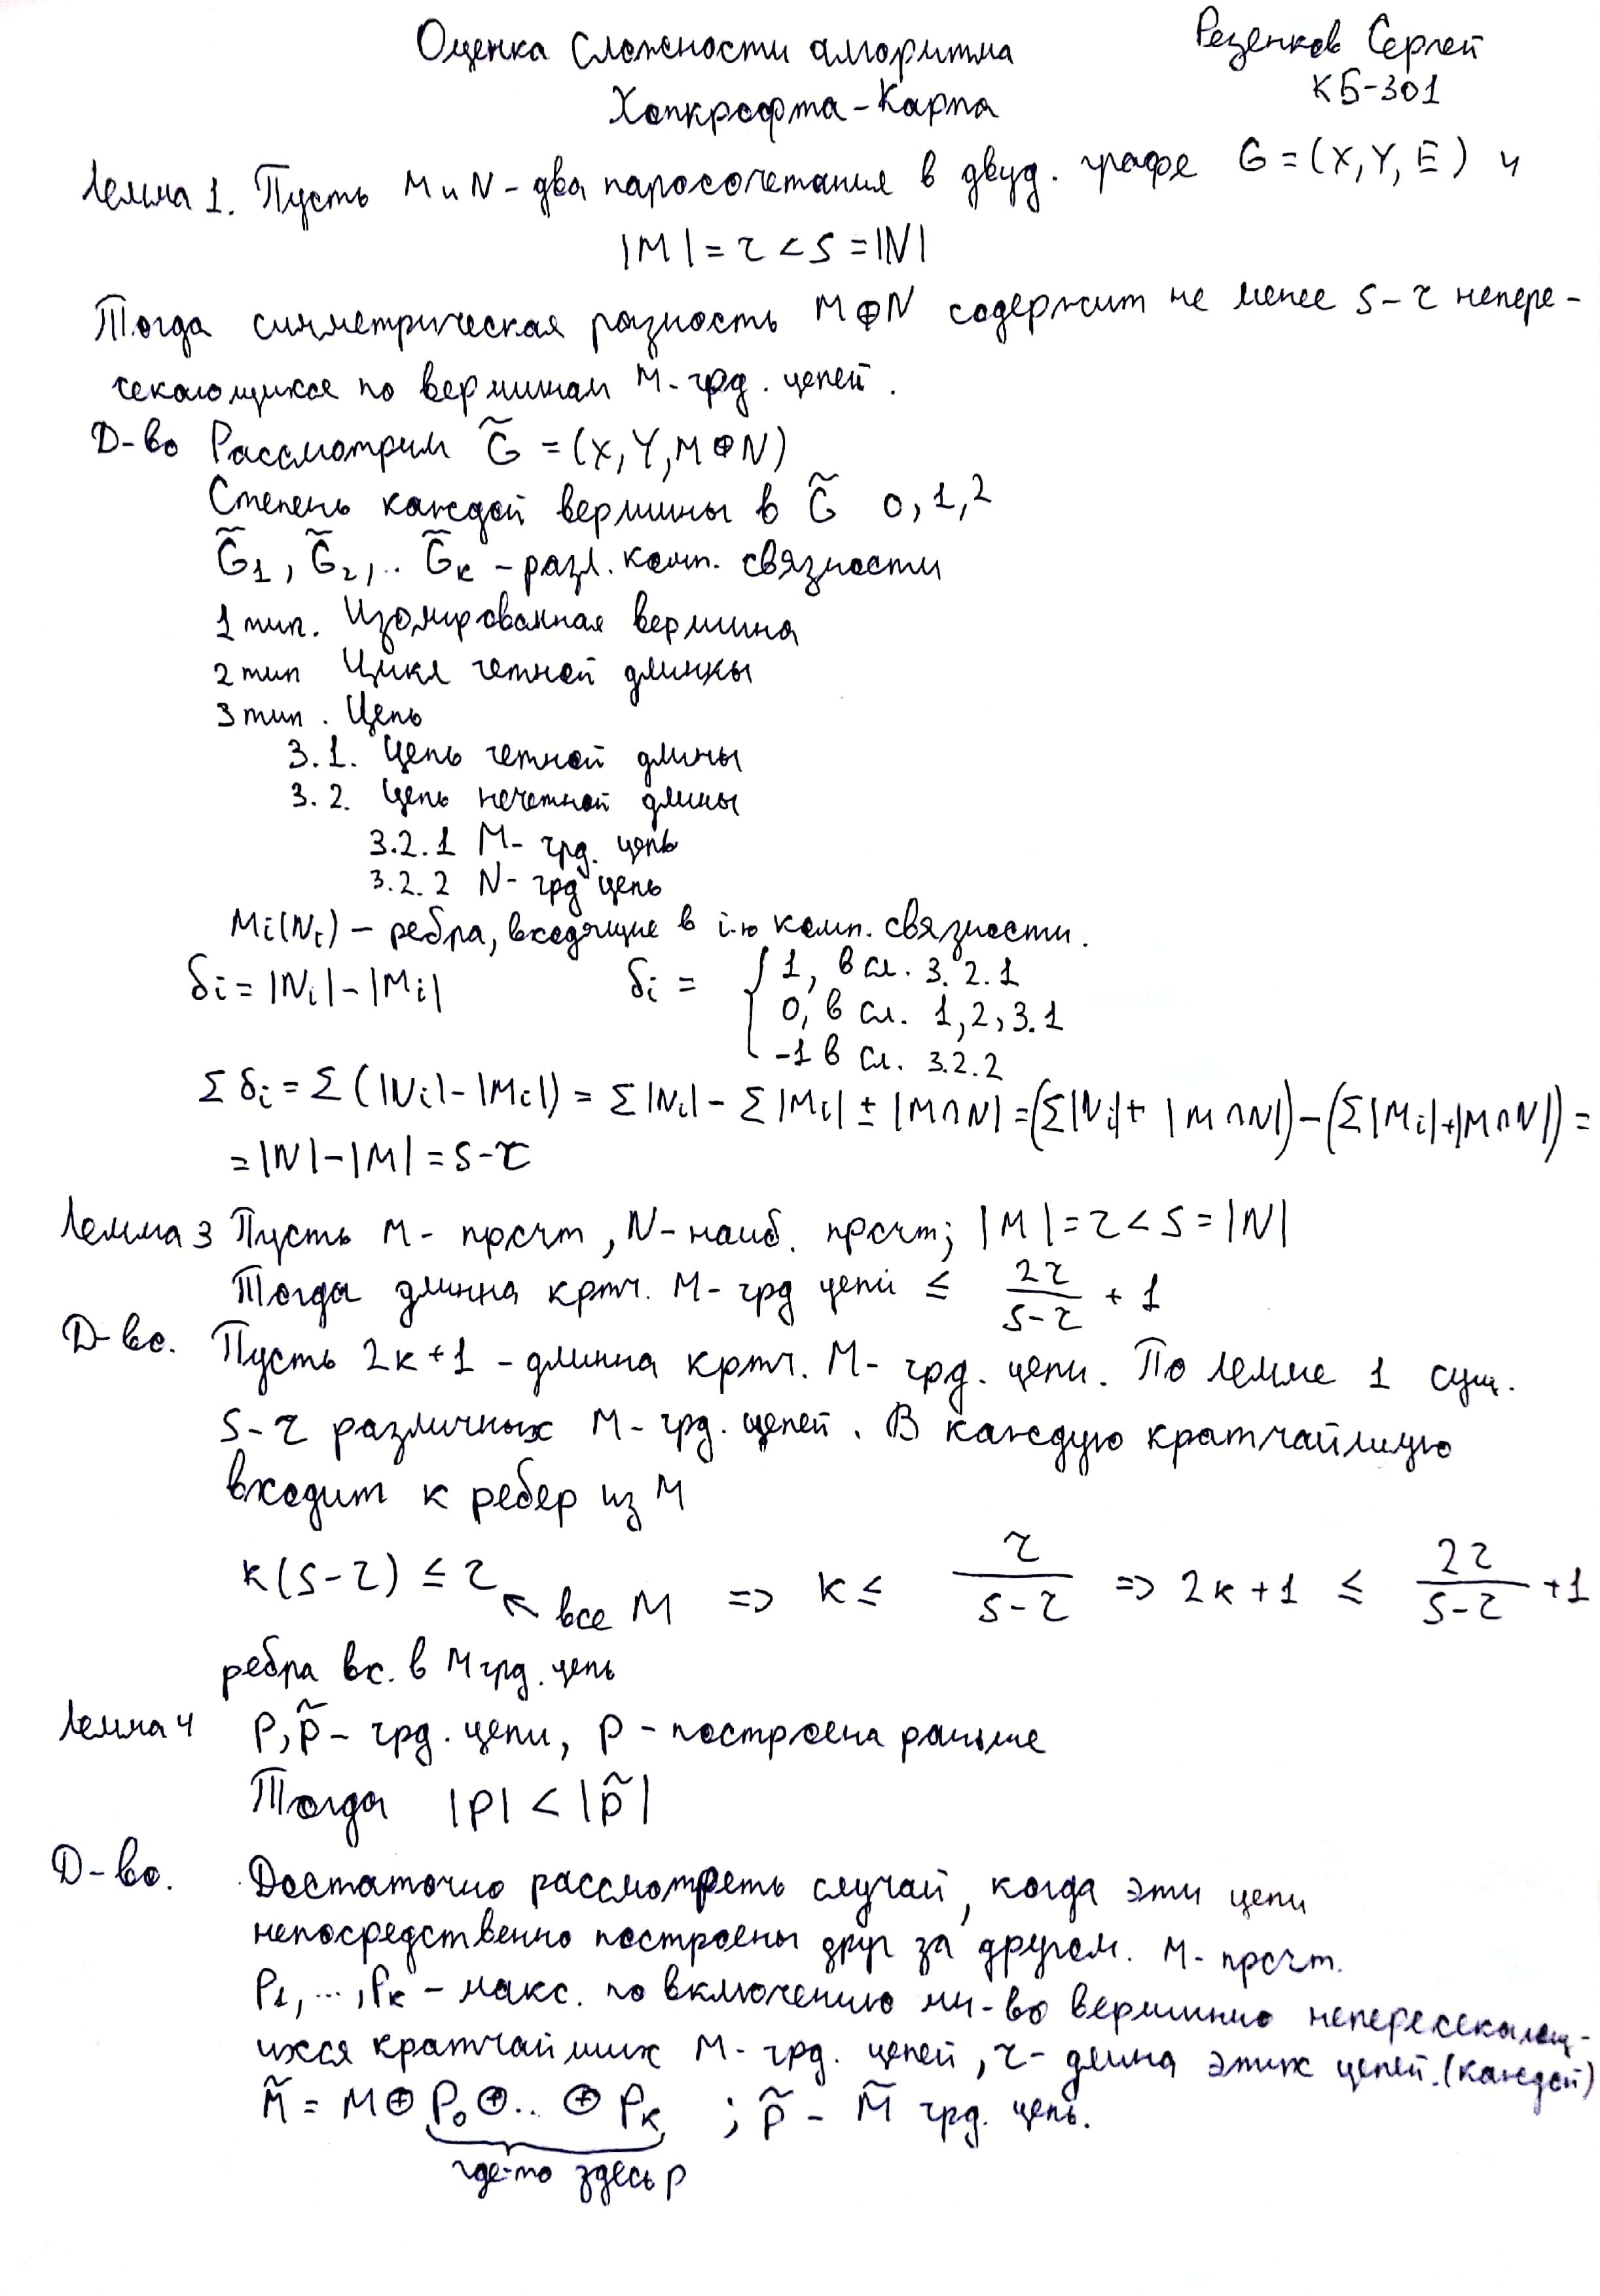 Оценка сложности алгоритма
Хопкрофта-Карпа
Резенков Сергей
КБ-301
Лемма 1. Пусть M и N - два паросочетания в двуд. графе G = (X, Y, E) и
|M| = r < s = |N|
Тогда симметрическая разность M⊕N содержит не менее s-r непере-
секающихся по вершинам M-чрд. цепей.
Д-во Рассмотрим G̃ = (X, Y, M⊕N)
Степень каждой вершины в G̃ 0, 1, 2
G̃₁, G̃₂,.. G̃ₖ - разл. комп. связности
1 тип. Изолированная вершина
2 тип Цикл четной длинны
3 тип. Цепь
3.1. Цепь четной длины
3.2. Цепь нечетной длины
3.2.1 M-чрд. цепь
3.2.2 N-чрд цепь
Mᵢ(Nᵢ) - ребра, входящие в i-ю комп. связности.
δᵢ = |Nᵢ| - |Mᵢ| δᵢ = { 1, в сл. 3.2.1
0, в сл. 1, 2, 3.1
-1 в сл. 3.2.2
Σ δᵢ = Σ (|Nᵢ| - |Mᵢ|) = Σ|Nᵢ| - Σ|Mᵢ| ± |M∩N| = (Σ|Nᵢ| + |M∩N|) - (Σ|Mᵢ| + |M∩N|) =
= |N| - |M| = s-r
Лемма 3 Пусть M - прсчт, N - наиб. прсчт; |M| = r < s = |N|
Тогда длинна кртч. M-чрд цепи ≤ 2r/(s-r) + 1
Д-во. Пусть 2k+1 - длинна кртч. M-чрд. цепи. По лемме 1 сущ.
s-r различных M-чрд. цепей. В каждую кратчайшую
входит k ребер из M
k(s-r) ≤ r ⇒ k ≤ r/(s-r) ⇒ 2k+1 ≤ 2r/(s-r) + 1
↖ все M
ребра вх. в M чрд. цепь
Лемма 4 P, P̃ - чрд. цепи, P - построена раньше
Тогда |P| < |P̃|
Д-во. Достаточно рассмотреть случай, когда эти цепи
непосредственно построены друг за другом. M - прсчт.
P₁, ..., Pₖ - макс. по включению мн-во вершинно непересекающ-
ихся кратчайших M-чрд. цепей, r - длина этих цепей. (каждой)
M̃ = M⊕P₀⊕..⊕Pₖ ; P̃ - M̃ чрд. цепь.
где-то здесь P